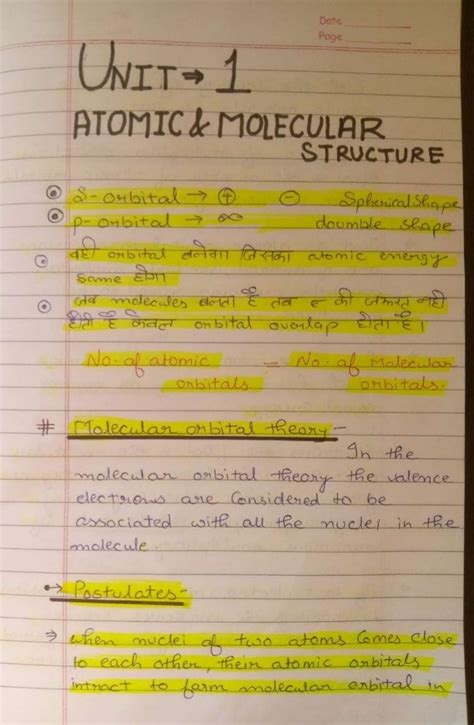 Date
Page
UNIT → 1
ATOMIC & MOLECULAR
STRUCTURE
S-orbital → ⊕ ⊖ Spherical Shape
p-orbital → ∞ doumble shape
वही orbital बनेगा जिसका atomic energy
same होगा
जब molecules बनता है तब e⁻ की जरूरत नही
होती है केवल orbital overlap होता है।
No. of atomic = No. of Molecular
orbitals orbitals.
# Molecular orbital theory -
In the
molecular orbital theory the valence
electrons are Considered to be
associated with all the nuclei in the
molecule.
→ Postulates -
⇒ when nuclei of two atoms Comes Close
to each other, their atomic orbitals
intract to form molecular orbital in